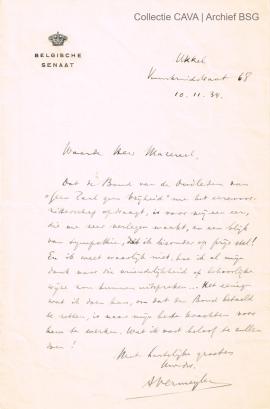 Collectie CAVA | Archief BSG
BELGISCHE
SENAAT
Ukkel
68
10.11.34.
Waarde Heer Masereel.
Dat de Bond van de Oudleden van
"Geen Taal geen Vrijheid" me het eerevoor-
zitterschap opdraagt, is voor mij een eer,
die me zeer verlegen maakt, en een blijk
van sympathie, dat ik bijzonder op prijs stel!
En ik weet waarlijk niet, hoe ik al mijn
dank voor die vriendelijkheid op behoorlijke
wijze zou kunnen uitspreken... Het eenige
wat ik doen kan, om dat den Bond betaald
te zetten, is naar mijn beste krachten voor
hem te werken. Wat ik vast beloof te zullen
doen!
Met hartelijke groeten
Uw dw.
AVermeylen